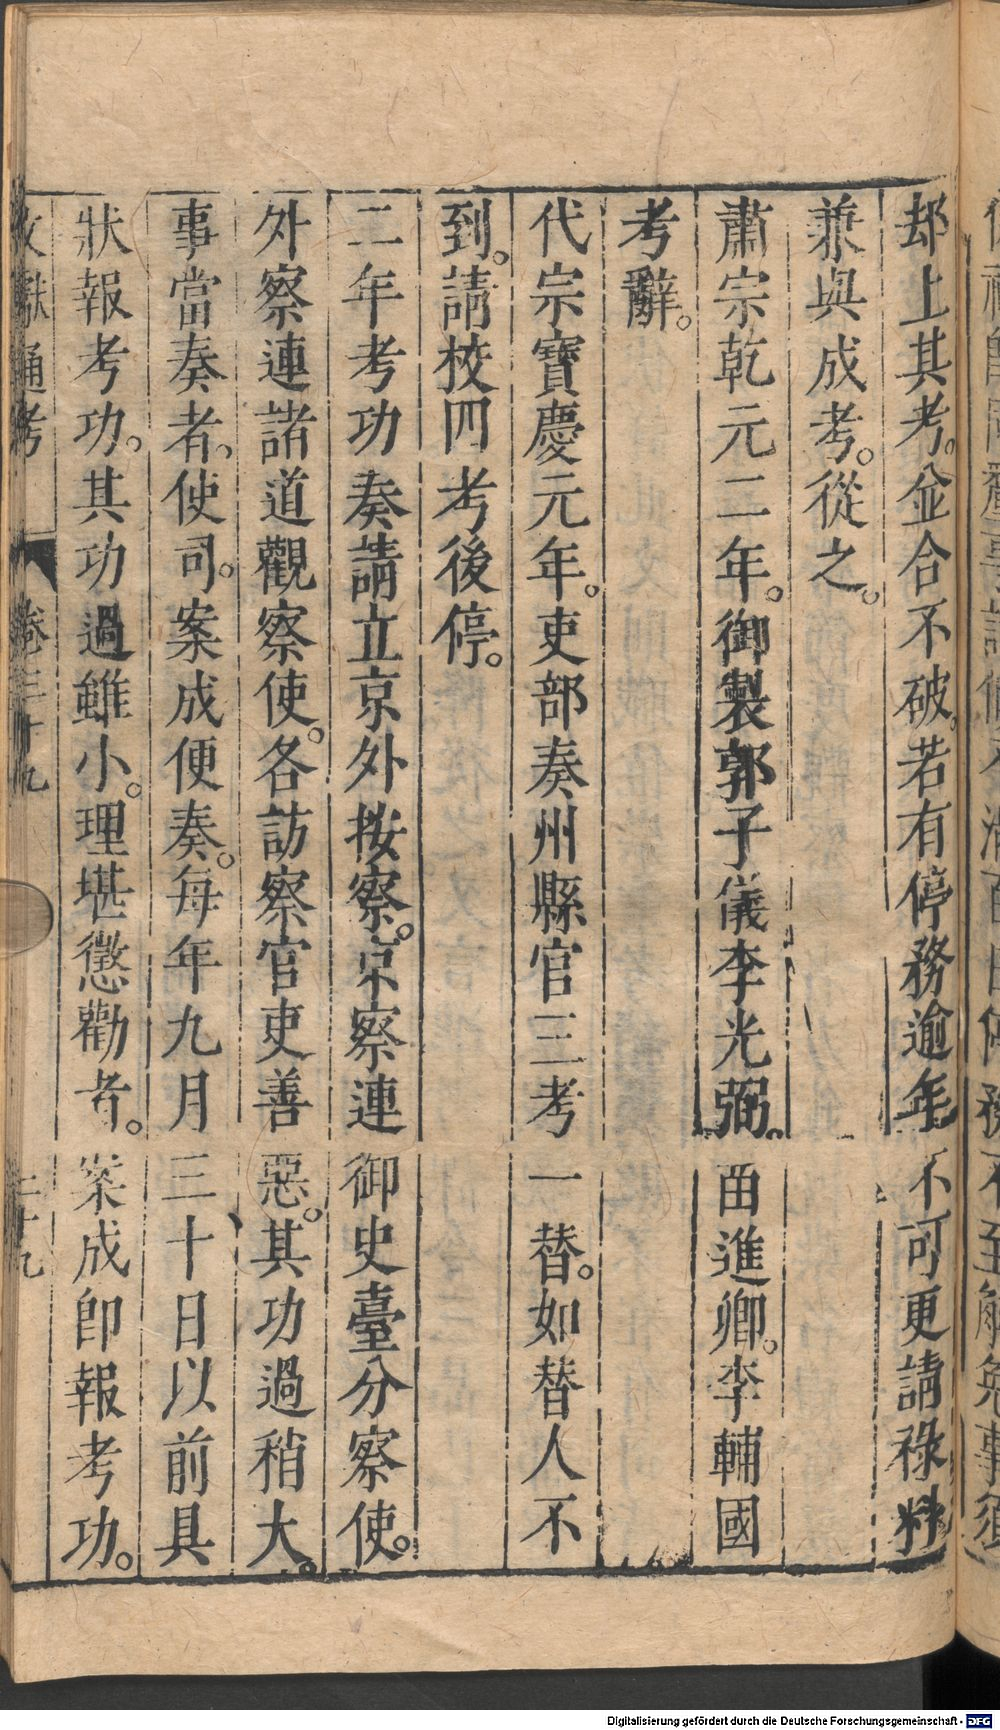 却上其考。並合不破。若有停務逾年不可更請祿料
兼與成考。從之。
肅宗乾元二年。御製郭子儀李光弼。苗進卿。李輔國
考辭。
代宗寶慶元年。吏部奏州縣官三考一替。如替人不
到。請校四考後停。
二年考功奏請立京外按察。京察連御史臺分察使。
外察連諸道觀察使。各訪察官吏善惡。其功過稍大。
事當奏者、使司。案成便奏。每年九月三十日以前具
狀報考功。其功過雖小。理堪懲勸者。案成卽報考功。
文獻通考 卷三十九 二十九
Digitalisierung gefördert durch die Deutsche Forschungsgemeinschaft - DFG